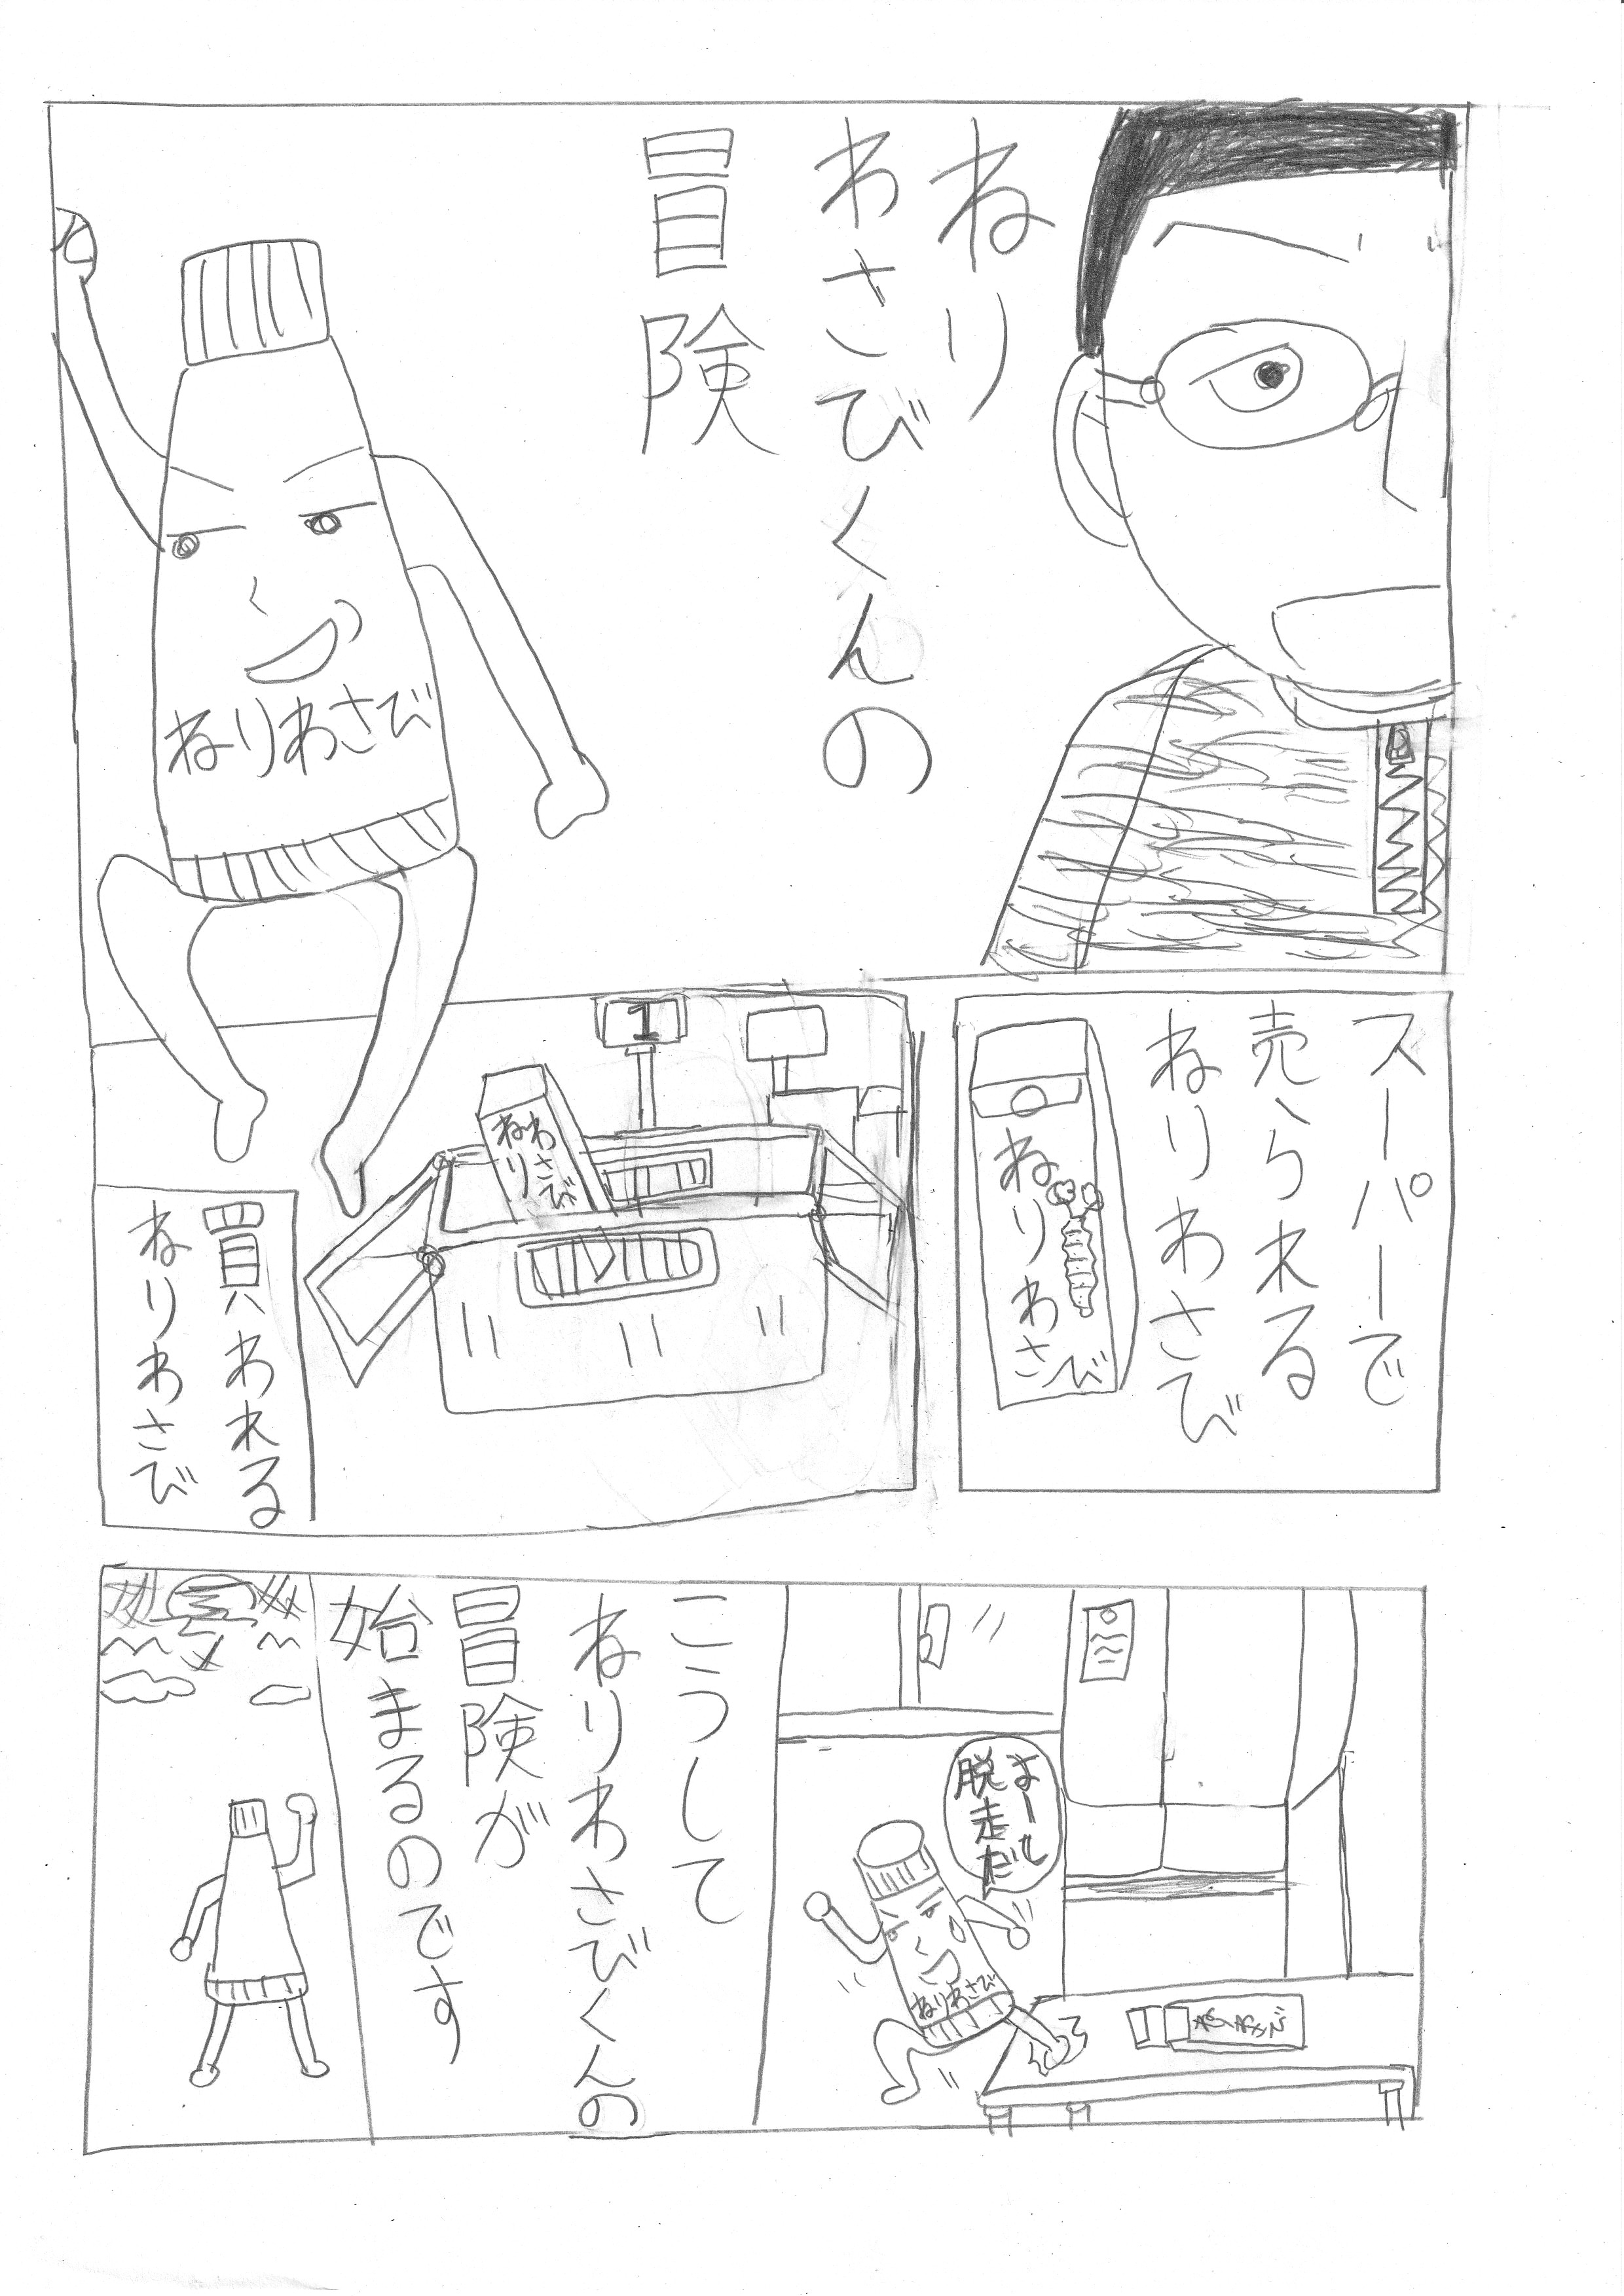 ねり
わさびくんの
冒険
ねりわさび
スーパーで
売られる
ねりわさび
ねりわさび
1
ねり
わさび
買われる
ねりわさび
よーし
脱走だ
ねりわさび
こうして
ねりわさびくんの
冒険が
始まるのです